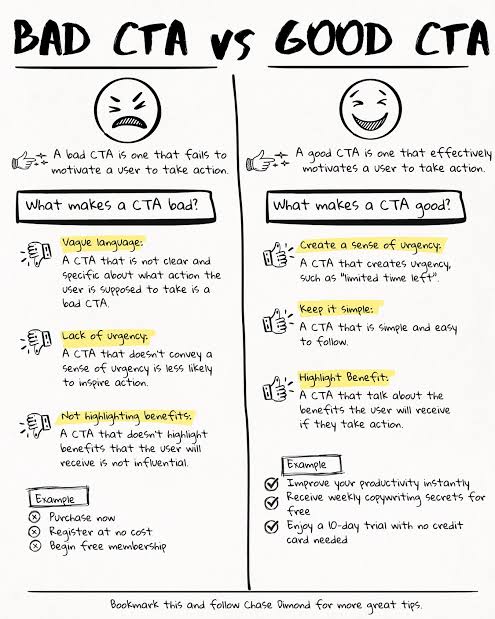 BAD CTA vs GOOD CTA
A bad CTA is one that fails to
motivate a user to take action.
What makes a CTA bad?
Vague language:
A CTA that is not clear and
specific about what action the
user is supposed to take is a
bad CTA.
Lack of urgency:
A CTA that doesn't convey a
sense of urgency is less likely
to inspire action.
Not highlighting benefits:
A CTA that doesn't highlight
benefits that the user will
receive is not influential.
Example
Purchase now
Register at no cost
Begin free membership
A good CTA is one that effectively
motivates a user to take action.
What makes a CTA good?
Create a sense of urgency:
A CTA that creates urgency,
such as "limited time left".
Keep it simple:
A CTA that is simple and easy
to follow.
Highlight Benefit:
A CTA that talk about the
benefits the user will receive
if they take action.
Example
Improve your productivity instantly
Receive weekly copywriting secrets for
free
Enjoy a 10-day trial with no credit
card needed
Bookmark this and follow Chase Dimond for more great tips.